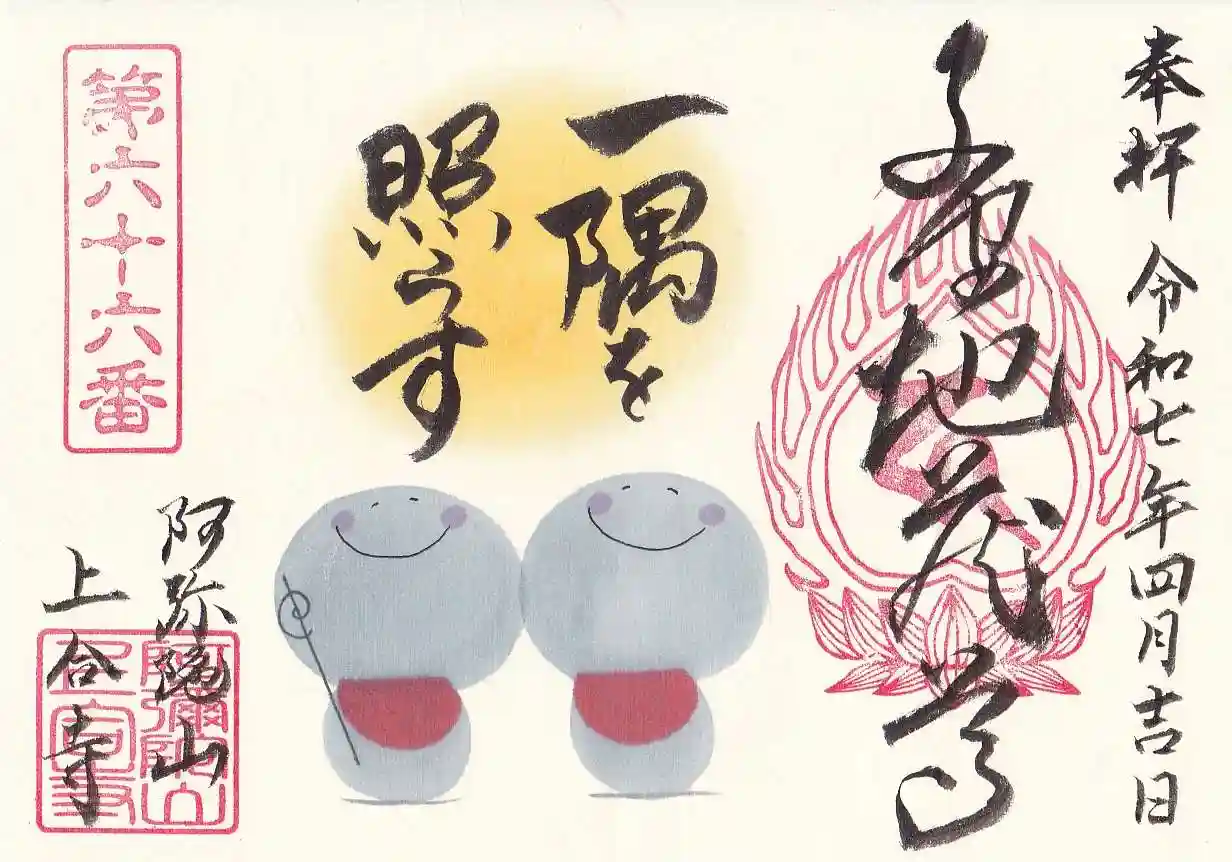 奉拝 令和七年四月吉日
子育地蔵尊
一隅を
照らす
第六十六番
阿弥陀山
上合寺